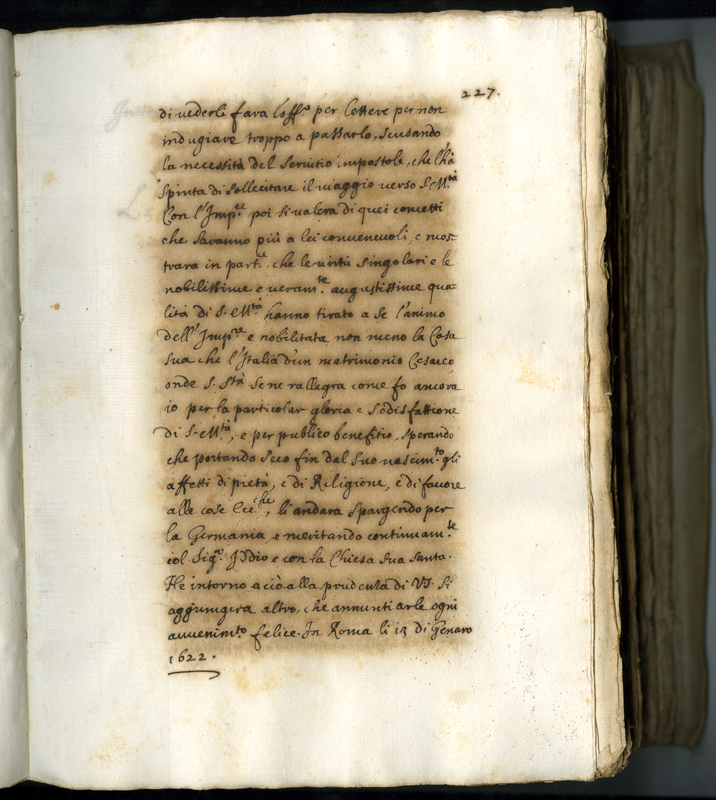 227.
di vederli fara l'off.º per lettere per non
indugiare troppo a passarlo, scusando
la necessità del servitio impostole, che l'hà
spinta di sollecitare il viaggio verso S. M.tà
Con l'Imp.ce poi si valerà di quei concetti
che saranno più a lei convenevoli, e mos=
trara in part.re, che le virtù singolari e le
nobilissime e veram.te augustissime qua=
lità di S. M.tà hanno tirato a se l'animo
dell'Imp.re e nobilitata non meno la Casa
sua che l'Italia d'un matrimonio Cesareo
onde S. S.tà se ne rallegra come fo ancora
io per la particolar gloria e sodisfattione
di S. M.tà, e per publico benefitio, sperando
che portando seco fin dal suo nascim.to gli
affetti di pietà, e di Religione, e di favore
alle cose Ecc.che, li andara spargendo per
la Germania, e meritando continuam.te
col Sig.r Iddio e con la Chiesa sua santa.
Ne intorno a ciò alla prudenza di VS. si
aggiungera altro, che annuntiarle ogni
avvenim.to felice. In Roma li 13 di Genaro
1622.